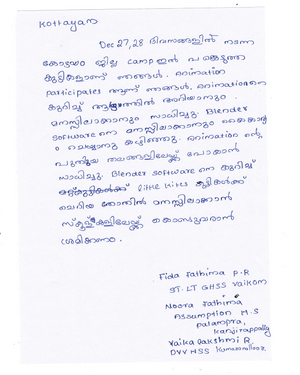 Kottayam
Dec 27,28 ദിവസങ്ങളിൽ നടന്ന
കോട്ടയം ജില്ല camp ഇൽ പങ്കെടുത്ത
കുട്ടികളാണ് ഞങ്ങൾ. Animation
participates ആണ് ഞങ്ങൾ. Animation നെ
കുറിച്ച് അറിയാനും
മനസ്സിലാക്കാനും സാധിച്ചു. Blender
software നെ മനസ്സിലാക്കാനും കൈകാര്യ
കഴിഞ്ഞു. Animation ന്റെ
പുതിയ തലങ്ങളിലേയ്ക്ക് പോകാൻ
സാധിച്ചു. Blender software നെ കുറിച്ച്
little kites കുട്ടികൾക്ക്
ചെറിയ തോതിൽ മനസ്സിലാക്കാൻ
സ്കൂളുകളിലേയ്ക്ക് കൊണ്ടുവരാൻ
ശ്രമിക്കണം.
Fida Fathima P.R
ST. LT GHSS Vaikom
Noora Fathima
Assumption H.S
Palampra,
Kanjirappally
Vaika Lakshmi R.
DVV HSS Kumaranalloor